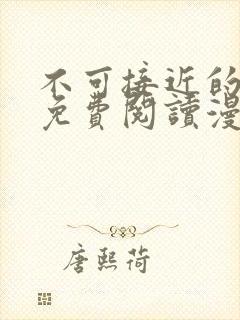 不可接近的
免費閱讀漫
唐熙荷